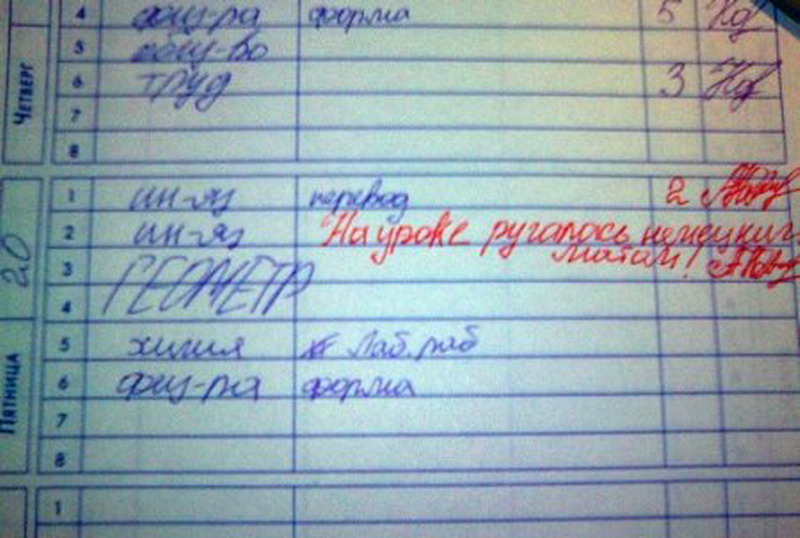 4 физ-ра форма 5
5 общ-во
6 труд 3
7
8
ЧЕТВЕРГ
1 ин-яз перевод 2
2 ин-яз На уроке ругалась немецким
матом!
3 ГЕОМЕТР
4
5 химия Лаб. раб
6 физ-ра форма
7
8
20
ПЯТНИЦА
1